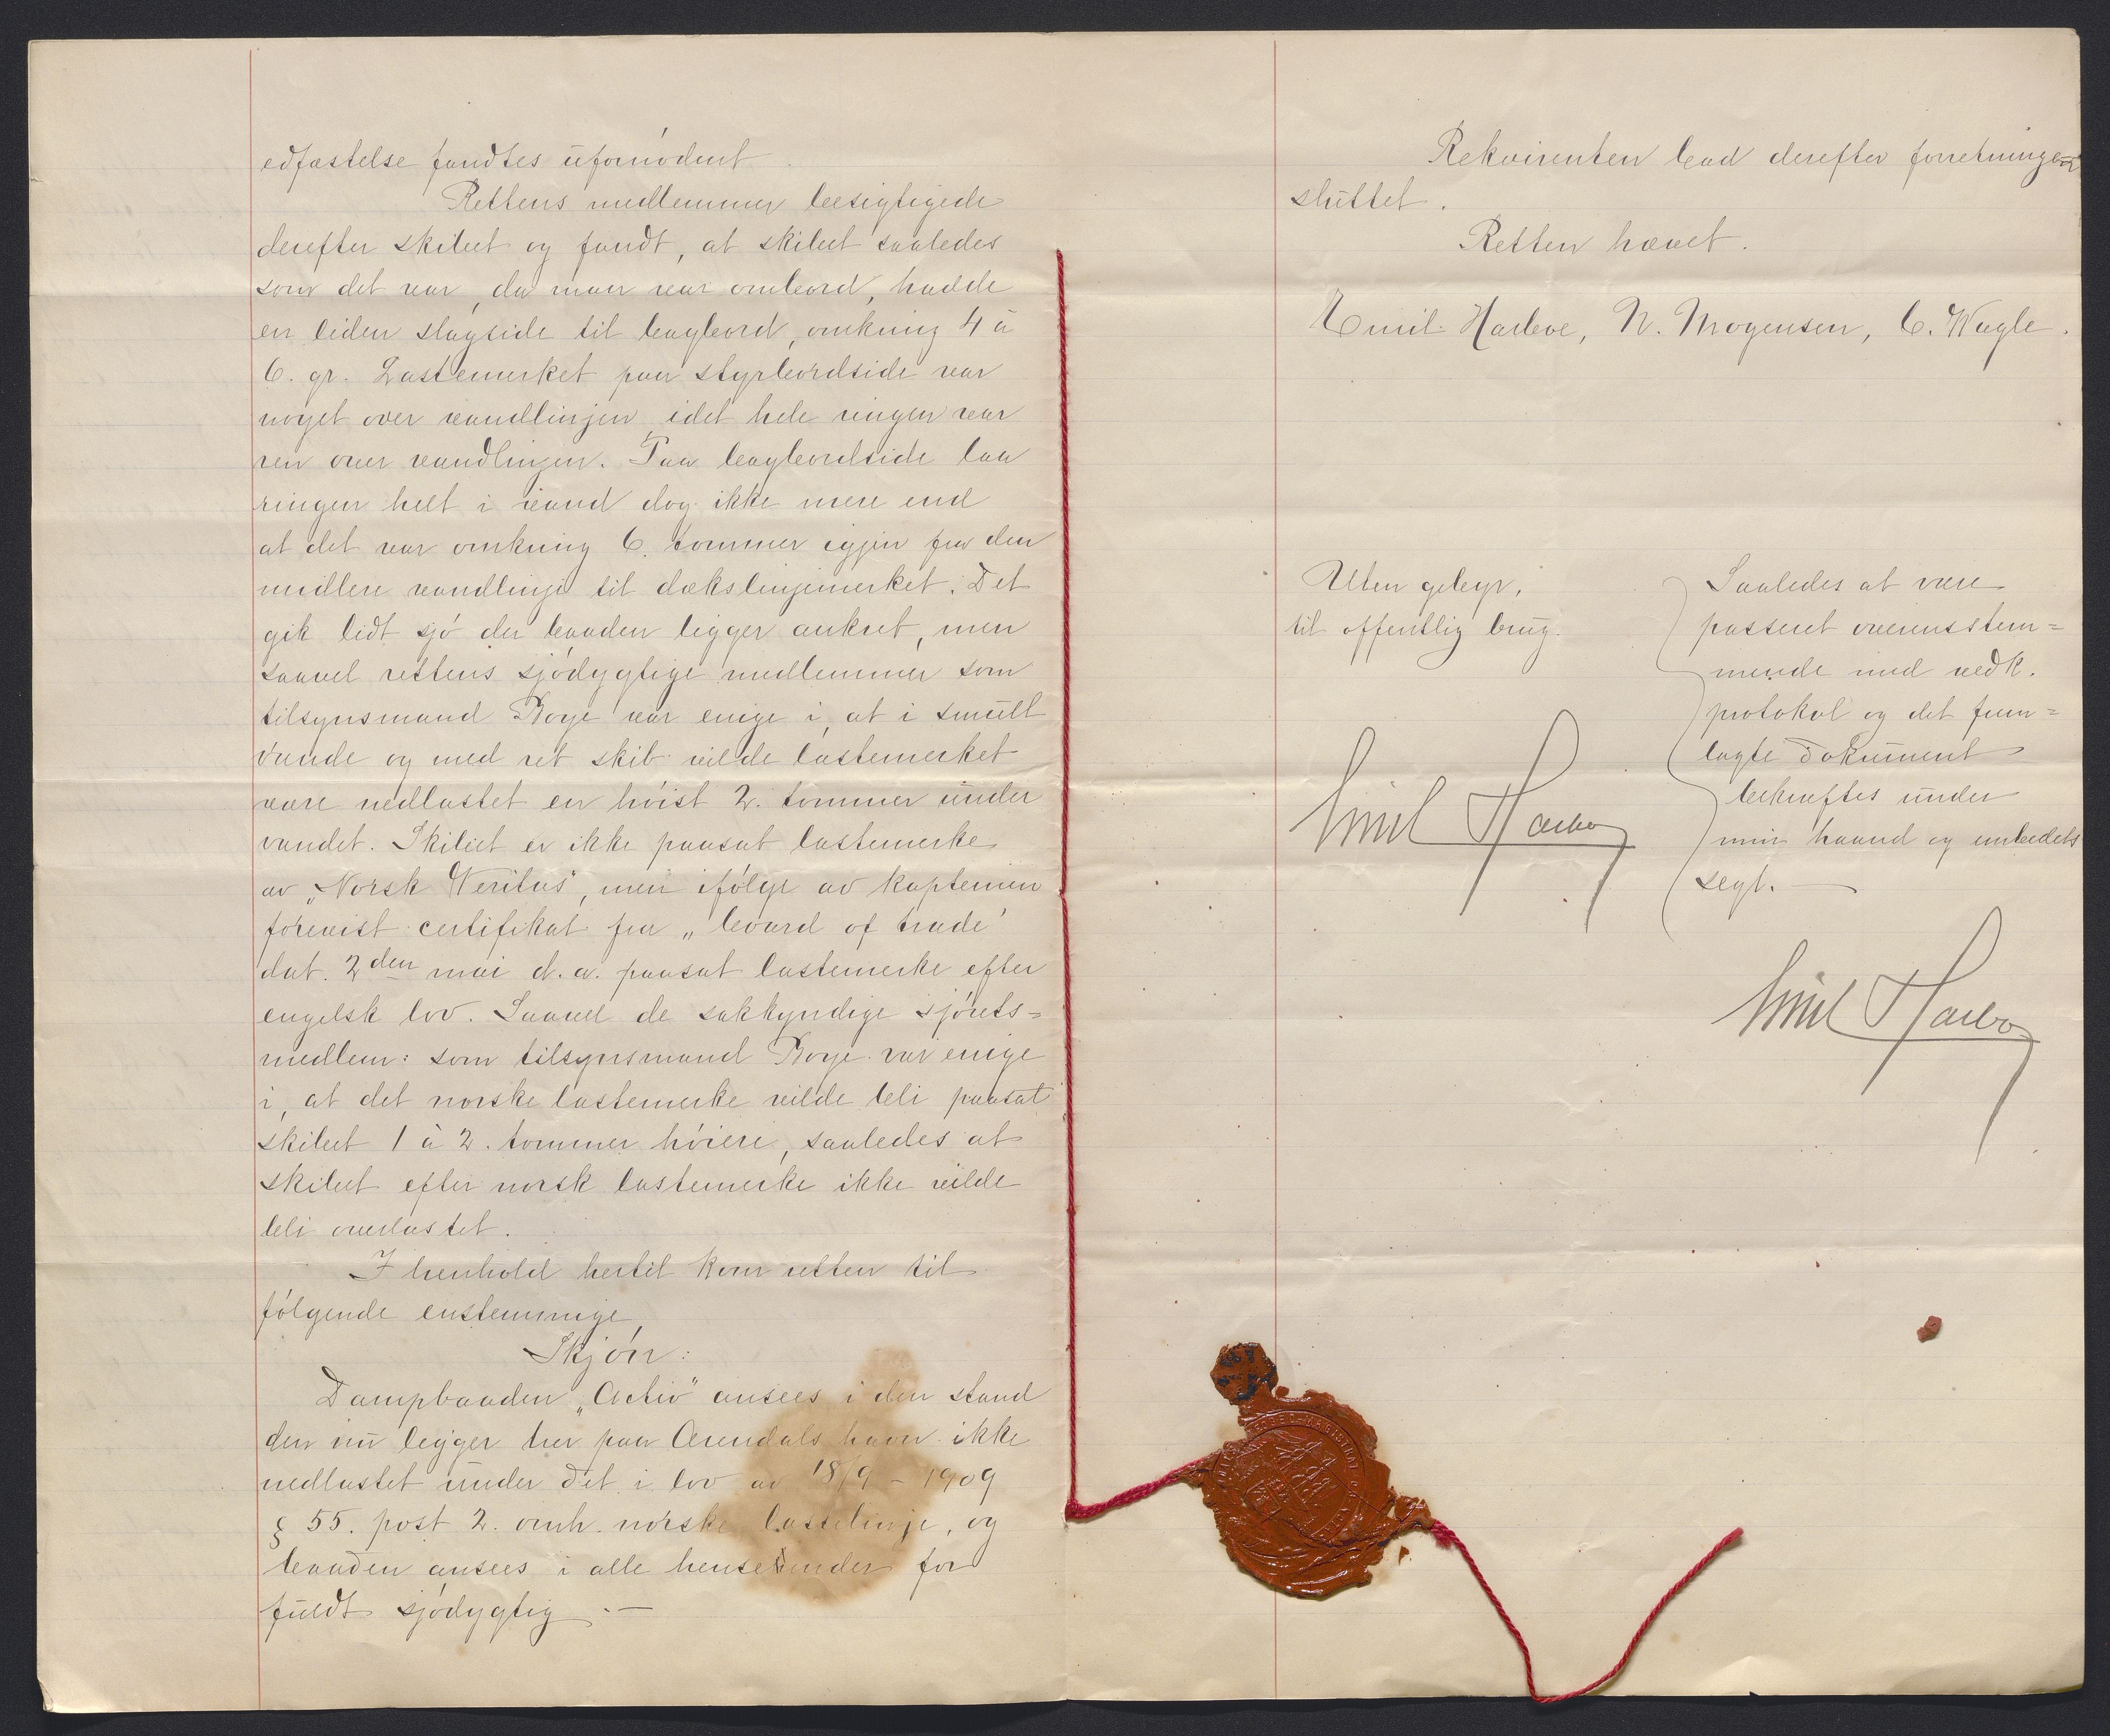 edfæstelse fandtes ufornødent.
Rettens medlemmer besigtigede
derefter skibet og fandt, at skibet saaledes
som det var, da man var ombord, hadde
en liden slagside til bagbord, omkring 4 à
6. gr. Lastemerket paa styrbordside var
noget over vandlinjen, idet hele ringen var
ren over vandlinjen. Paa bagbordside laa
ringen helt i vand dog ikke mere end
at det var omkring 6. tommer igjen fra den
midlere vandlinje til dækslinjemerket. Det
gik lidt sjø der baaden ligger ankret, men
saavel rettens sjødygtige medlemmer som
tilsynsmand Boye var enige i, at i smult
vande og med ret skib vilde lastemerket
være nedlastet en høist 2. tommer under
vandet. Skibet er ikke paasat lastemerke
av „Norsk Veritas", men ifølge av kapteinen
forevist certifikat fra „board of trade"
dat. 2den mai d. a. paasat lastemerke efter
engelsk lov. Saavel de sakkyndige sjørets=
medlem: som tilsynsmand Boye var enige
i, at det norske lastemerke vilde bli paasat
skibet 1 à 2. tommer høiere, saaledes at
skibet efter norsk lastemerke ikke vilde
bli overlastet.
I henhold hertil kom retten til
følgende enstemmige
Skjøn:
Dampbaaden „Activ" ansees i den stand
den nu ligger her paa Arendals havn ikke
nedlastet under det i lov av 18/9 - 1909
§ 55. post 2. omh. norske lastelinje, og
baaden ansees i alle henseender for
fuldt sjødygtig. —
Rekvirenten bad derefter forretningen
sluttet.
Retten hævet.
Emil Harboe, N. Mogensen, C. Wagle.
Uten gebyr,
til offentlig brug.
Emil Harboe
Saaledes at være
passeret overensstem=
mende med vedk.
protokol og det frem=
lagte dokument
bekræftes under
min haand og embedets
segl. —
Emil Harboe